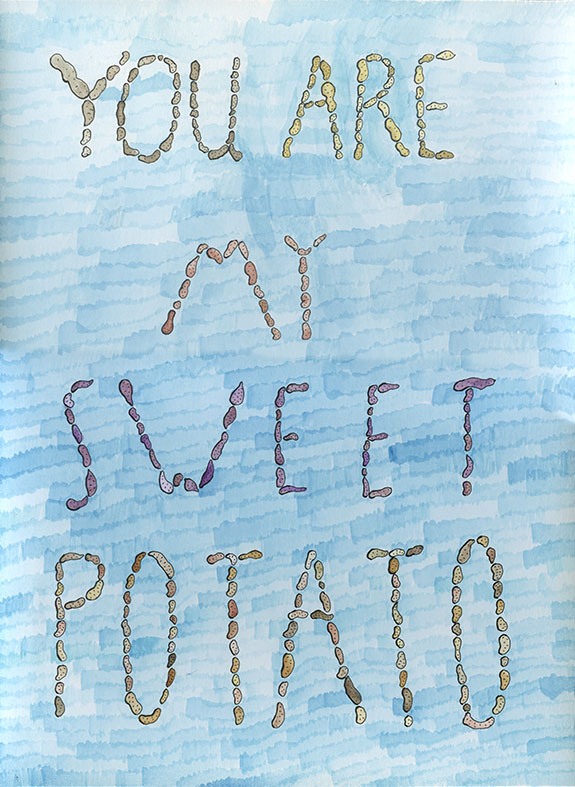 YOU ARE
MY
SWEET
POTATO